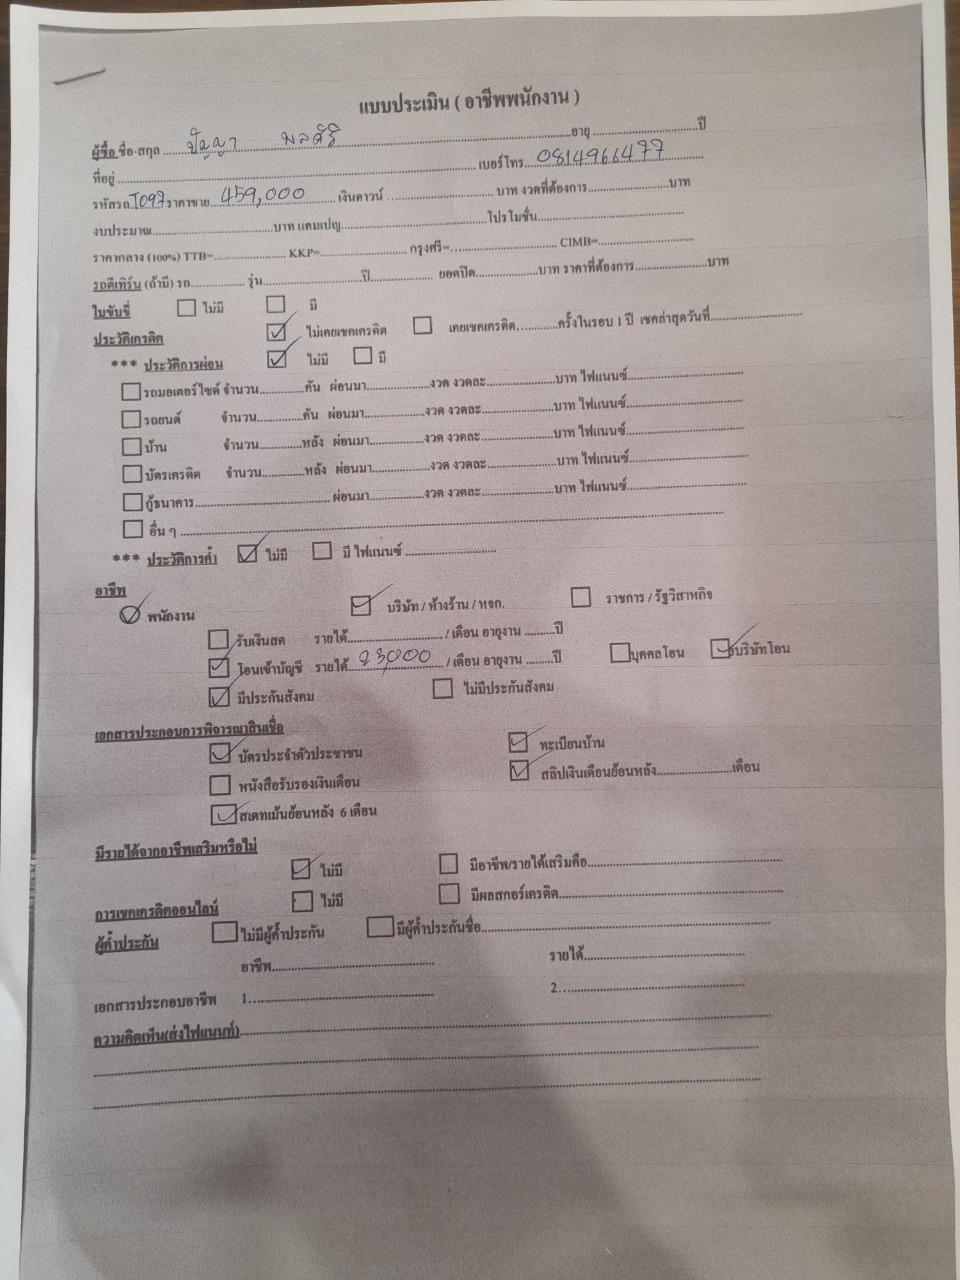 แบบประเมิน ( อาชีพพนักงาน )
ผู้ซื้อ ชื่อ-สกุล ........ ปัญญา ........ อายุ ........ ปี
ที่อยู่ ........ เบอร์โทร 0814966477
รหัสรถ T097 ราคาขาย 459,000 เงินดาวน์ ........ บาท งวดที่ต้องการ ........ บาท
งบประมาณ ........ บาท แคมเปญ ........ โปรโมชั่น ........
ราคากลาง (100%) TTB= ........ KKP= ........ กรุงศรี= ........ CIMB= ........
รถตีเทิร์น (ถ้ามี) รถ ........ รุ่น ........ ปี ........ ยอดปิด ........ บาท ราคาที่ต้องการ ........ บาท
ใบขับขี่ ☐ ไม่มี ☐ มี
ประวัติเครดิต ☑ ไม่เคยเชคเครดิต ☐ เคยเชคเครดิต ........ ครั้งในรอบ 1 ปี เชคล่าสุดวันที่ ........
*** ประวัติการผ่อน ☑ ไม่มี ☐ มี
☐ รถมอเตอร์ไซค์ จำนวน ........ คัน ผ่อนมา ........ งวด งวดละ ........ บาท ไฟแนนซ์ ........
☐ รถยนต์ จำนวน ........ คัน ผ่อนมา ........ งวด งวดละ ........ บาท ไฟแนนซ์ ........
☐ บ้าน จำนวน ........ หลัง ผ่อนมา ........ งวด งวดละ ........ บาท ไฟแนนซ์ ........
☐ บัตรเครดิต จำนวน ........ หลัง ผ่อนมา ........ งวด งวดละ ........ บาท ไฟแนนซ์ ........
☐ กู้ธนาคาร ........ ผ่อนมา ........ งวด งวดละ ........ บาท ไฟแนนซ์ ........
☐ อื่น ๆ ........
*** ประวัติการค้ำ ☑ ไม่มี ☐ มี ไฟแนนซ์ ........
อาชีพ
☑ พนักงาน ☑ บริษัท / ห้างร้าน / หจก. ☐ ราชการ / รัฐวิสาหกิจ
☐ รับเงินสด รายได้ ........ / เดือน อายุงาน ........ ปี
☑ โอนเข้าบัญชี รายได้ 23,000 / เดือน อายุงาน ........ ปี ☐ บุคคลโอน ☑ บริษัทโอน
☑ มีประกันสังคม ☐ ไม่มีประกันสังคม
เอกสารประกอบการพิจารณาสินเชื่อ
☑ บัตรประจำตัวประชาชน ☑ ทะเบียนบ้าน
☐ หนังสือรับรองเงินเดือน ☑ สลิปเงินเดือนย้อนหลัง ........ เดือน
☑ สเตทเม้นย้อนหลัง 6 เดือน
มีรายได้จากอาชีพเสริมหรือไม่ ☑ ไม่มี ☐ มีอาชีพ/รายได้เสริมคือ ........
การเชคเครดิตออนไลน์ ☐ ไม่มี ☐ มีผลสกอร์เครดิต ........
ผู้ค้ำประกัน ☐ ไม่มีผู้ค้ำประกัน ☐ มีผู้ค้ำประกันชื่อ ........
อาชีพ ........ รายได้ ........
เอกสารประกอบอาชีพ 1. ........ 2. ........
ความคิดเห็น(ส่งไฟแนนท์) ........